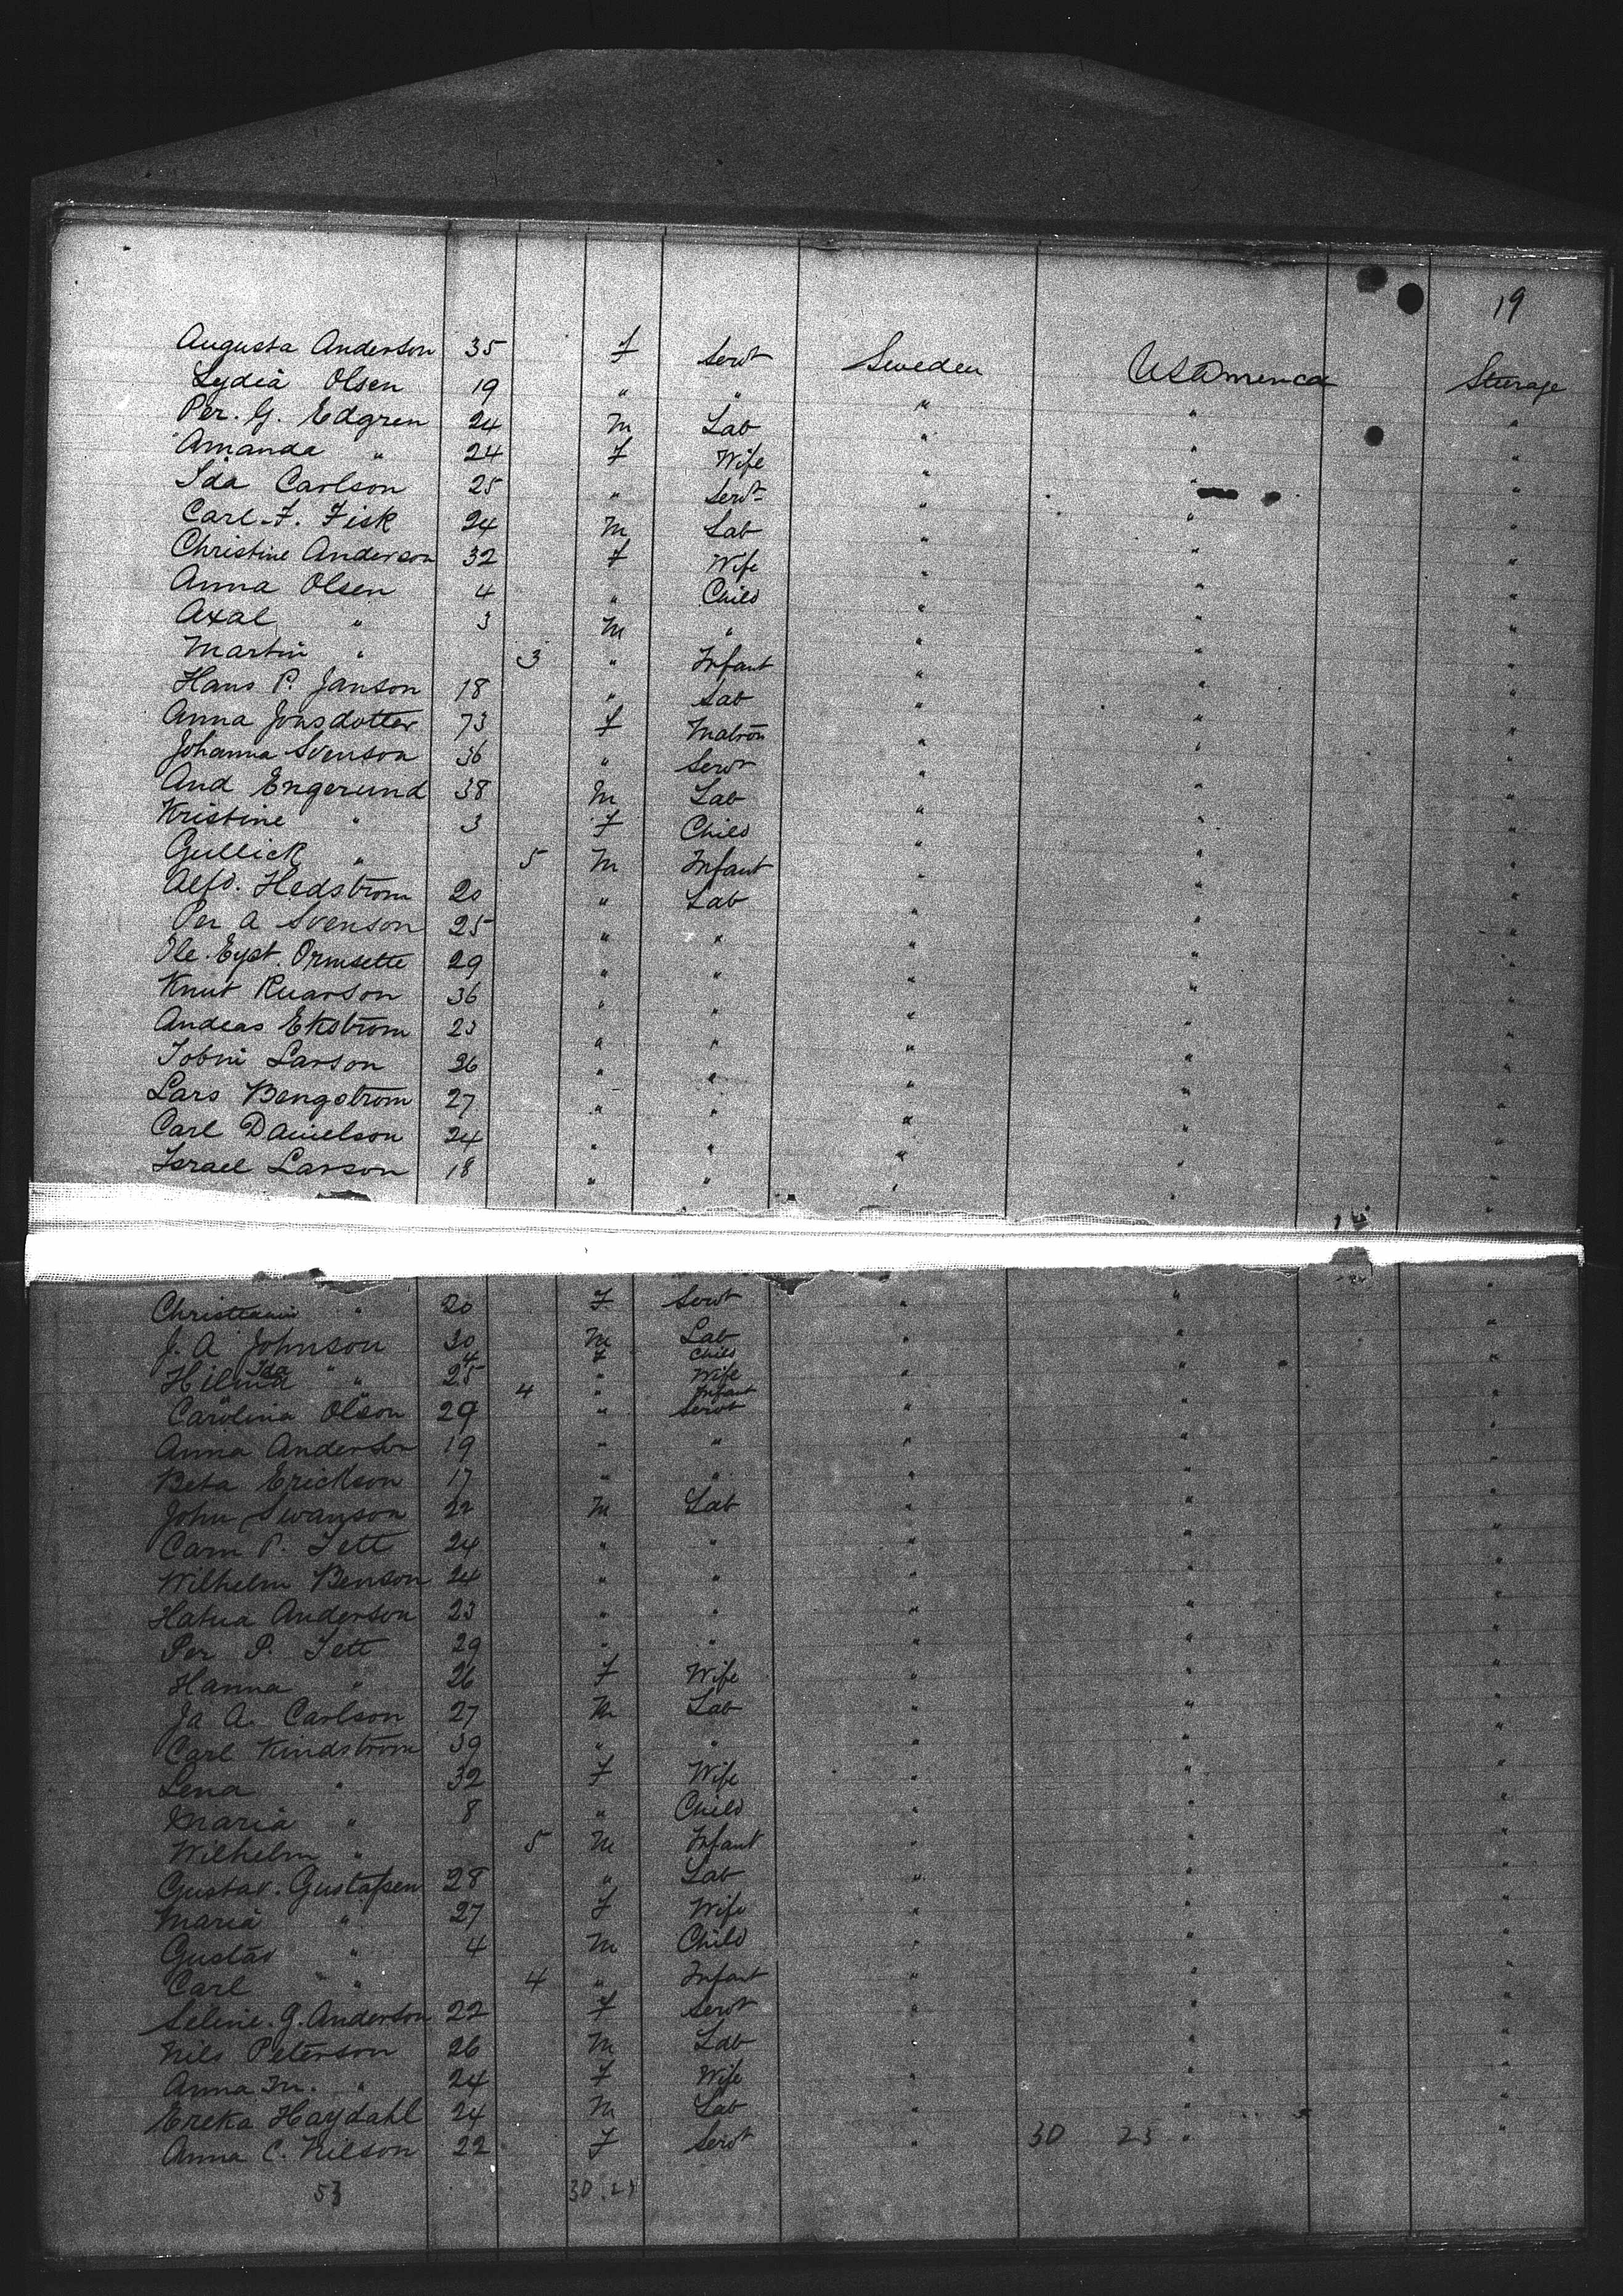 19
Augusta Anderson 35 F Servt Sweden U S America Steerage
Lydia Olsen 19 " " " " "
Per. G. Edgren 24 M Lab " " "
Amanda " 24 F Wife " " "
Ida Carlson 25 " Servt " " "
Carl. F. Fisk 24 M Lab " " "
Christine Anderson 32 F Wife " " "
Anna Olsen 4 " Child " " "
Axal " 3 M " " " "
Martin " 3 " Infant " " "
Hans P. Janson 18 " Lab " " "
Anna Jonsdotter 73 F Matron " " "
Johanna Svenson 36 " Servt " " "
And Engerund 38 M Lab " " "
Kristine " 3 F Child " " "
Gullick " 5 M Infant " " "
Alfd. Hedstrom 20 " Lab " " "
Per A Svenson 25 " " " " "
Ole. Eyst. Ormsette 29 " " " " "
Knut Ruarson 36 " " " " "
Andeas Ekstrom 23 " " " " "
Larson 26 " " " " "
Lars Bengstrom 27 " " " " "
Carl Danielson 24 " " " " "
Israel Larson 18 " " " " "
" 20 F Servt " " "
J. A Johnson 30 M Lab " " "
Ida " 4 F Child
Hilma " 25 " Wife " " "
4 Infant
Carolina Olson 29 " Servt " " "
Anna Anderson 19 " " " " "
Beta Erickson 17 " " " " "
John Swanson 22 M Lab " " "
Carn P. Tett 24 " " " " "
Wilhelm Benson 24 " " " " "
Anderson 23 " " " " "
Per P. Tett 29 " " " " "
Hanna " 26 F Wife " " "
Ja A. Carlson 27 M Lab " " "
Carl Kindstrom 39 " " " " "
Lena " 32 F Wife " " "
Maria " 8 " Child " " "
Wilhelm " 5 M Infant " " "
Gustav. Gustafsen 28 " Lab " " "
Maria " 27 F Wife " " "
Gustav " 4 M Child " " "
Carl " 4 " Infant " " "
Seline. G. Anderson 22 F Servt " " "
Nils Peterson 26 M Lab " " "
Anna M. " 24 F Wife " " "
Ereka Haydahl 24 M Lab " " "
Anna C. Nilson 22 F Servt " 30 23 " "
53 30.23